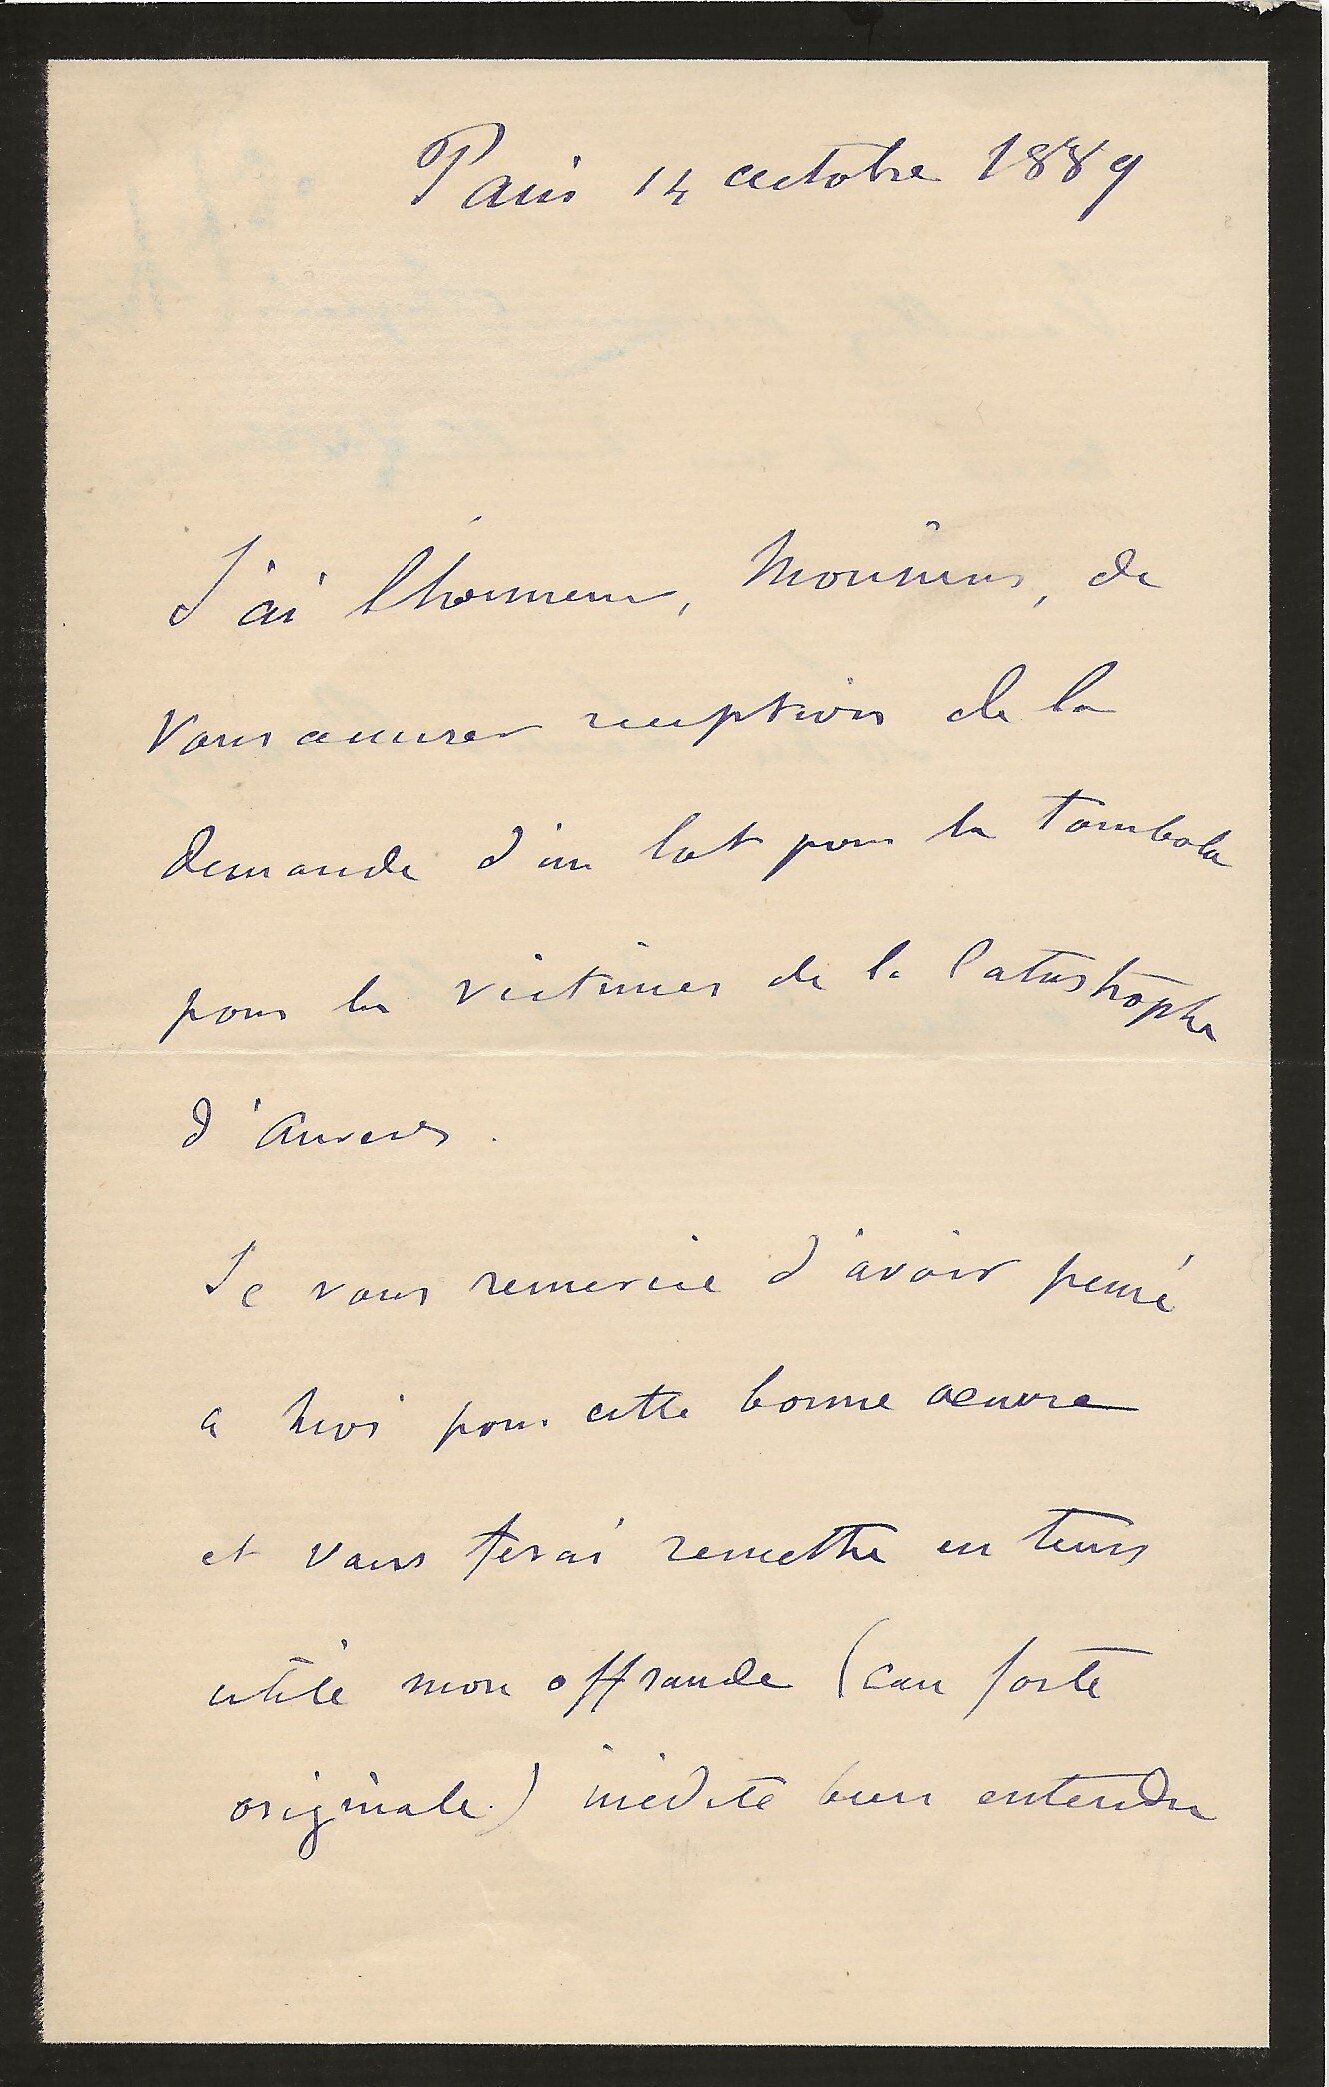 Paris 14 octobre 1889
J'ai l'honneur, Monsieur, de
vous accuser reception de la
demande d'un lot pour la tombola
pour les victimes de la Catastrophe
d'Anvers.
Je vous remercie d'avoir pensé
a moi pour cette bonne oeuvre
et vous ferai remettre en tems
utile mon offrande (eau forte
originale.) inédite bien entendu